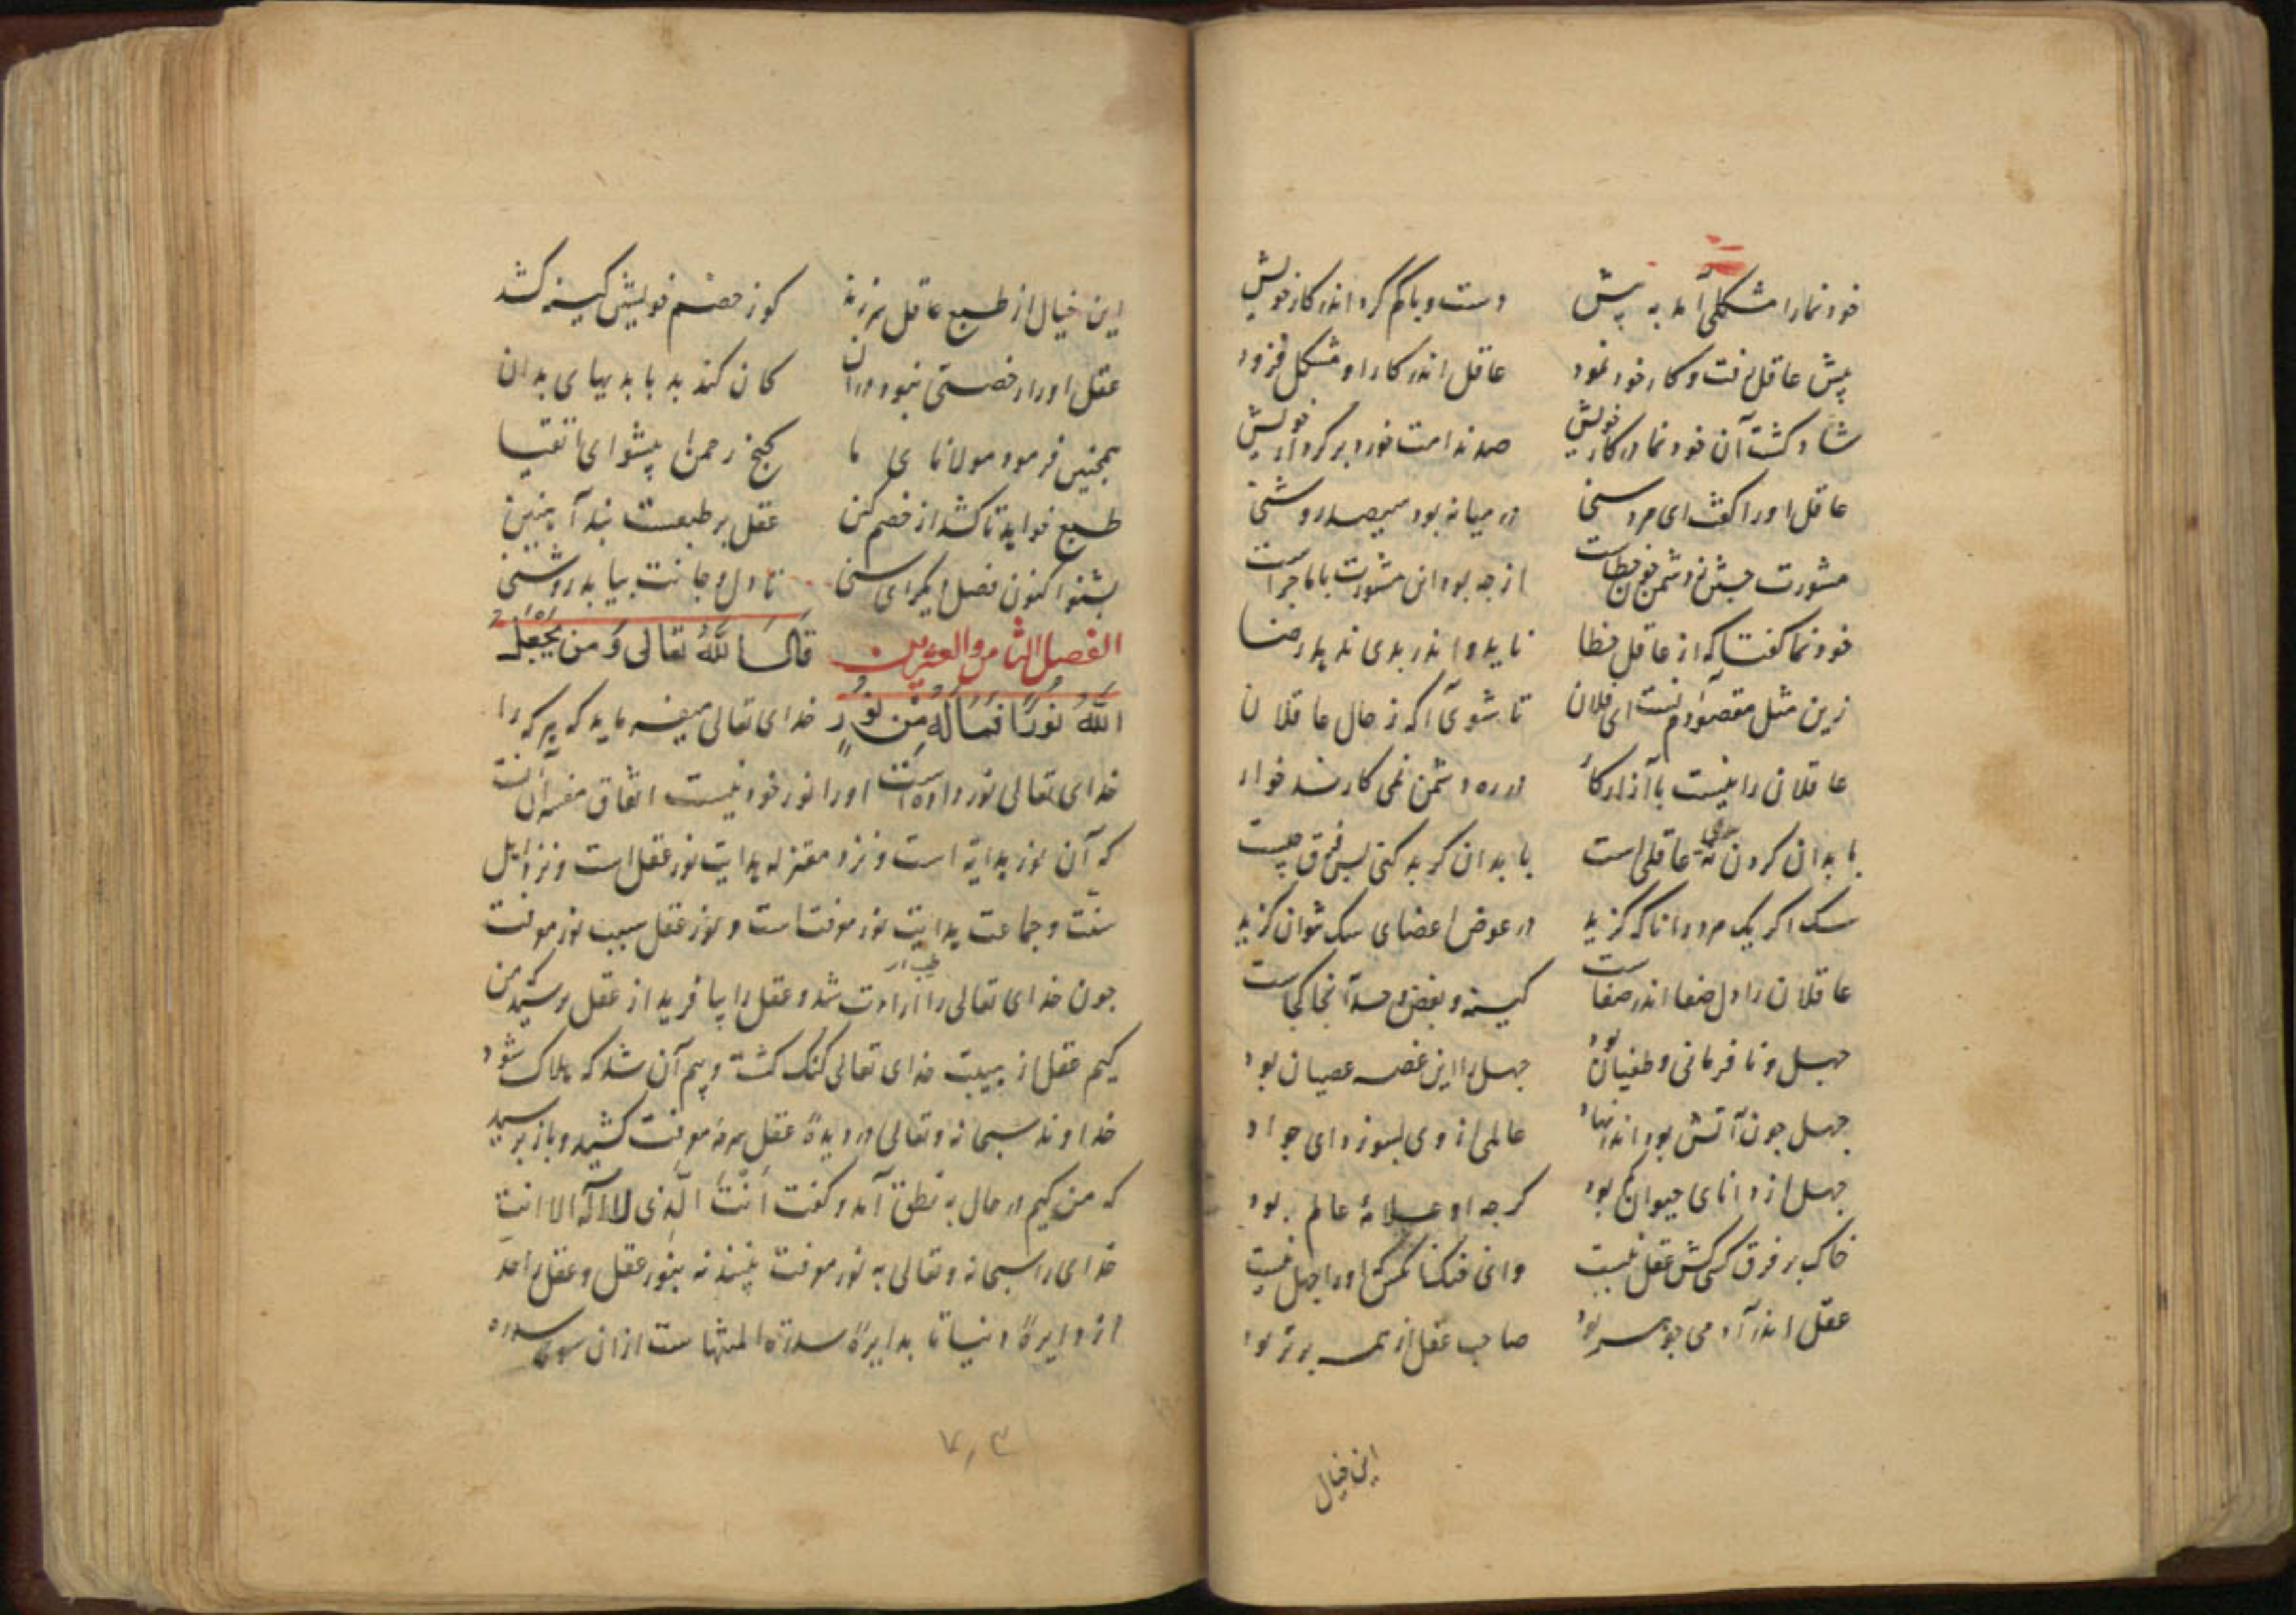 خود نما را مشکلی آمد به پیش دست و پا گم کرد اندر کار خویش
پیش عاقل رفت و کار خود نمود عاقل اندر کار او مشکل فزود
شاد کشت آن خود نما در کار خویش صد ندامت خورد بر کردار خویش
عاقل او را کفت ای مرد سنی در میانه بود سیصد روشنی
مشورت جستن ز دشمن خطاست از چه بود این مشورت با ماجراست
خود نما کفتا که از عاقل خطا ناید و اندر بدی ندهد رضا
زین مثل مقصودم آنست ای فلان تا شوی آکه ز حال عاقلان
عاقلان را نیست با آزار کار در ره دشمن نمی کارند خوار
با بدان کردن بدی نه عاقلی است با بدان کر بد کنی پس فرق چیست
سک اکر یک مرد دانا که کزید در عوض اعضای سک نتوان کزید
عاقلان را دل صفا اندر صفاست کینه و بغض و حسد آنجا کجاست
جهل و نافرمانی و طغیان بود جهل را این غصه عصیان بود
جهل چون آتش بود اندر نهاد عالمی از وی بسوزد ای جواد
جهل از دانای حیوان کم بود کرچه او علامهٔ عالم بود
خاک بر فرق کسی کش عقل نیست وان خنک آنکس که او را جهل نیست
عقل اندر آدمی جوهر بود صاحب عقل از همه برتر بود
این خیال
این خیال از طبع عاقل سر زند کو ز خصم خویش کینه کشد
عقل او را رخصتی نبود در آن کان کند بد با بدیهای بدان
همچنین فرمود مولانای ما کنج رحمن پیشوای اتقیا
طبع خواهد تا کشد از خصم کین عقل بر طبعست بند آهنین
بشنو اکنون فصل دیکر ای سنی تا دل و جانت بیابد روشنی
الفصل الثامن والعشرین قَالَ اللّٰهُ تعالی وَ مَن لَّمْ یَجْعَلِ
اللّٰهُ لَهُ نُورًا فَمَا لَهُ مِن نُّورٍ خدای تعالی میفرماید که هر که را
خدای تعالی نور نداده است او را نور خود نیست اتفاق مفسران آنست
که آن نور هدایة است و نزد معتزله هدایت نور عقل است و نزد اهل
سنّت و جماعت هدایت نور معرفت است و نور عقل سبب نور معرفت
چون خدای تعالی را ارادت شد و عقل را بیافرید از عقل پرسید من
کیم عقل از هیبت خدای تعالی کنک کشت و بیم آن شد که هلاک شود
خداوند سبحانه و تعالی در دیدهٔ عقل سرمهٔ معرفت کشید و باز پرسید
که من کیم در حال به نطق آمد و کفت اَنْتَ الّذی لا اله الا انت
خدای را سبحانه و تعالی به نور معرفت بینند نه بنور عقل و عقل را حد
از دایرهٔ دنیا تا بدایرهٔ سدرة المنتهاست از آن سوی سدره
۷۰۳